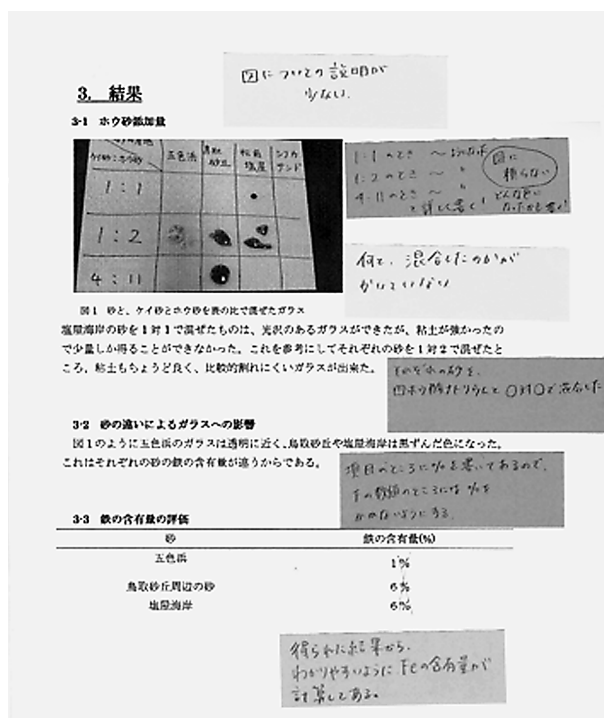 図についての説明が
少ない.
3. 結果
3-1 ホウ砂添加量
五色浜
鳥取
砂丘
塩屋
サンド
1:1
1:2
4:11
1:1のとき 〜
1:2のとき 〜 〃
4:11のとき 〜 〃
と詳しく書く!
図に
頼らない
どんな色に
なったかも書く!
何と、混合したのかが
かいていない
図1 砂と、ケイ砂とホウ砂を表の比で混ぜたガラス
塩屋海岸の砂を1対1で混ぜたものは、光沢のあるガラスができたが、粘土が強かったの
で少量しか得ることができなかった。これを参考にしてそれぞれの砂を1対2で混ぜたと
ころ、粘土もちょうど良く、比較的割れにくいガラスが出来た。
それぞれの砂を、
四ホウ酸ナトリウムと〇対〇で混合した
3-2 砂の違いによるガラスへの影響
図1のように五色浜のガラスは透明に近く、鳥取砂丘や塩屋海岸は黒ずんだ色になった。
これはそれぞれの砂の鉄の含有量が違うからである。
項目のところに%を書いてあるので、
下の数値のところには%を
かかないようにする.
3-3 鉄の含有量の評価
砂 鉄の含有量(%)
五色浜 1%
鳥取砂丘周辺の砂 6%
塩屋海岸 6%
得られた結果から、
わかりやすいようにFeの含有量が
計算してある。